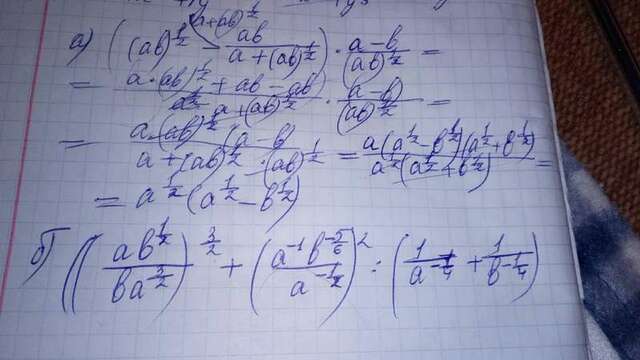 а) ((ab)^{1/2} - ab/(a+(ab)^{1/2})) · (a-b)/(ab)^{1/2} =
= (a·(ab)^{1/2} + ab - ab)/(a+(ab)^{1/2}) · (a-b)/(ab)^{1/2} =
= (a·(ab)^{1/2} (a-b))/(a+(ab)^{1/2} · (ab)^{1/2}) = (a(a^{1/2}-b^{1/2})(a^{1/2}+b^{1/2}))/(a^{1/2}(a^{1/2}+b^{1/2})) =
= a^{1/2}(a^{1/2}-b^{1/2})
б) ((ab^{1/2}/ba^{-3/2})^{3/2} + (a^{-1}b^{-5/6}/a^{-1/2})^2 : (1/a^{-1/4} + 1/b^{-1/4})